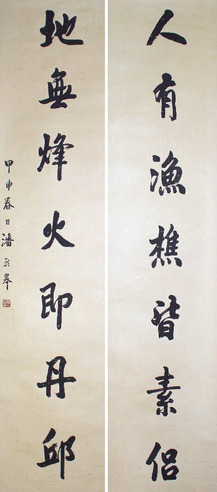 人有漁樵皆素侶
地無烽火即丹邱
甲申春日潘齡皋